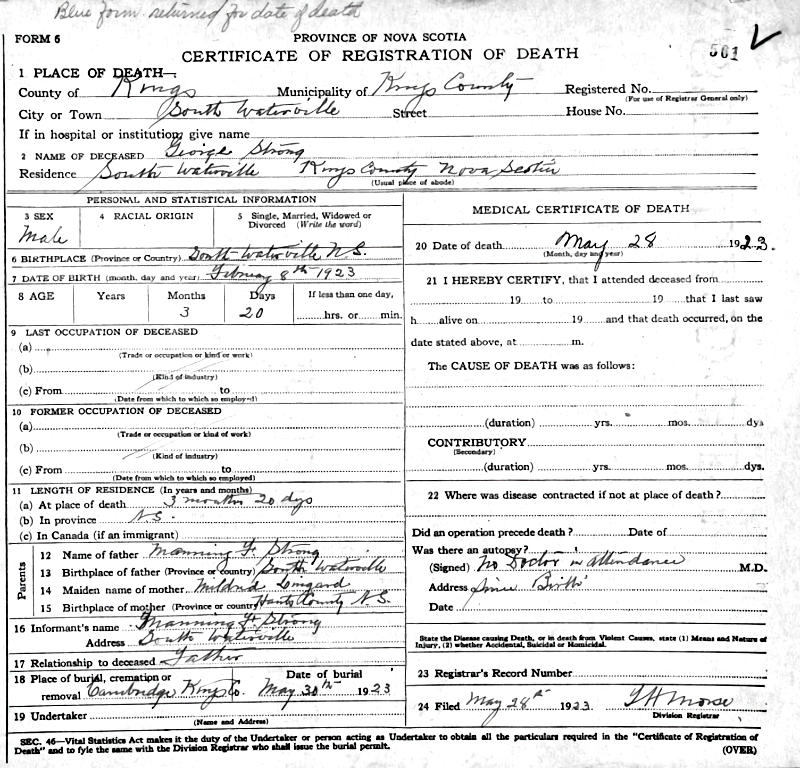 Blue form returned for date of death
FORM 6 PROVINCE OF NOVA SCOTIA
CERTIFICATE OF REGISTRATION OF DEATH 561
1 PLACE OF DEATH—
County of Kings Municipality of Kings County Registered No.
(For use of Registrar General only)
City or Town South Waterville Street House No.
If in hospital or institution, give name
2 NAME OF DECEASED George Strong
Residence South Waterville Kings County Nova Scotia
(Usual place of abode)
PERSONAL AND STATISTICAL INFORMATION
3 SEX 4 RACIAL ORIGIN 5 Single, Married, Widowed or Divorced (Write the word)
Male
6 BIRTHPLACE (Province or Country) South Waterville N.S.
7 DATE OF BIRTH (month, day and year) February 8th 1923
8 AGE Years Months Days If less than one day,
3 20 hrs. or min.
9 LAST OCCUPATION OF DECEASED
(a)
(Trade or occupation or kind or work)
(b)
(Kind of industry)
(c) From to
(Date from which to which so employed)
10 FORMER OCCUPATION OF DECEASED
(a)
(Trade or occupation or kind of work)
(b)
(Kind of industry)
(c) From to
(Date from which to which so employed)
11 LENGTH OF RESIDENCE (In years and months)
(a) At place of death 3 months 20 dys
(b) In province N.S.
(c) In Canada (if an immigrant)
Parents
12 Name of father Manning F. Strong
13 Birthplace of father (Province or country) South Waterville
14 Maiden name of mother Mildred Lingard
15 Birthplace of mother (Province or country) Hants County N.S.
16 Informant's name Manning F. Strong
Address South Waterville
17 Relationship to deceased Father
18 Place of burial, cremation or Date of burial
removal Cambridge Kings Co. May 30th 1923
19 Undertaker
(Name and Address)
MEDICAL CERTIFICATE OF DEATH
20 Date of death May 28 1923.
(Month, day and year)
21 I HEREBY CERTIFY, that I attended deceased from
19 to 19 that I last saw
h alive on 19 and that death occurred, on the
date stated above, at m.
The CAUSE OF DEATH was as follows:
(duration) yrs. mos. dys
CONTRIBUTORY
(Secondary)
(duration) yrs. mos. dys.
22 Where was disease contracted if not at place of death?
Did an operation precede death? Date of
Was there an autopsy?
(Signed) No Doctor in attendance M.D.
Address Since Birth
Date
State the Disease causing Death, or in death from Violent Causes, state (1) Means and Nature of
Injury, (2) whether Accidental, Suicidal or Homicidal.
23 Registrar's Record Number
24 Filed May 28th 1923 Morse
Division Registrar
SEC. 46—Vital Statistics Act makes it the duty of the Undertaker or person acting as Undertaker to obtain all the particulars required in the "Certificate of Registration of
Death" and to fyle the same with the Division Registrar who shall issue the burial permit. (OVER)